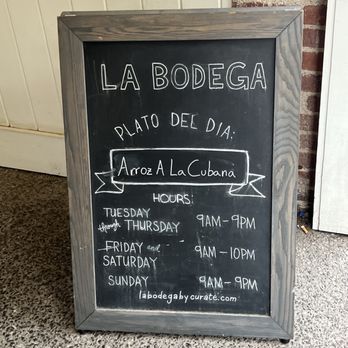 LA BODEGA
PLATO DEL DIA:
Arroz A La Cubana
HOURS:
TUESDAY
through THURSDAY 9AM-9PM
FRIDAY and
SATURDAY 9AM-10PM
SUNDAY 9AM-9PM
labodegabycurate.com